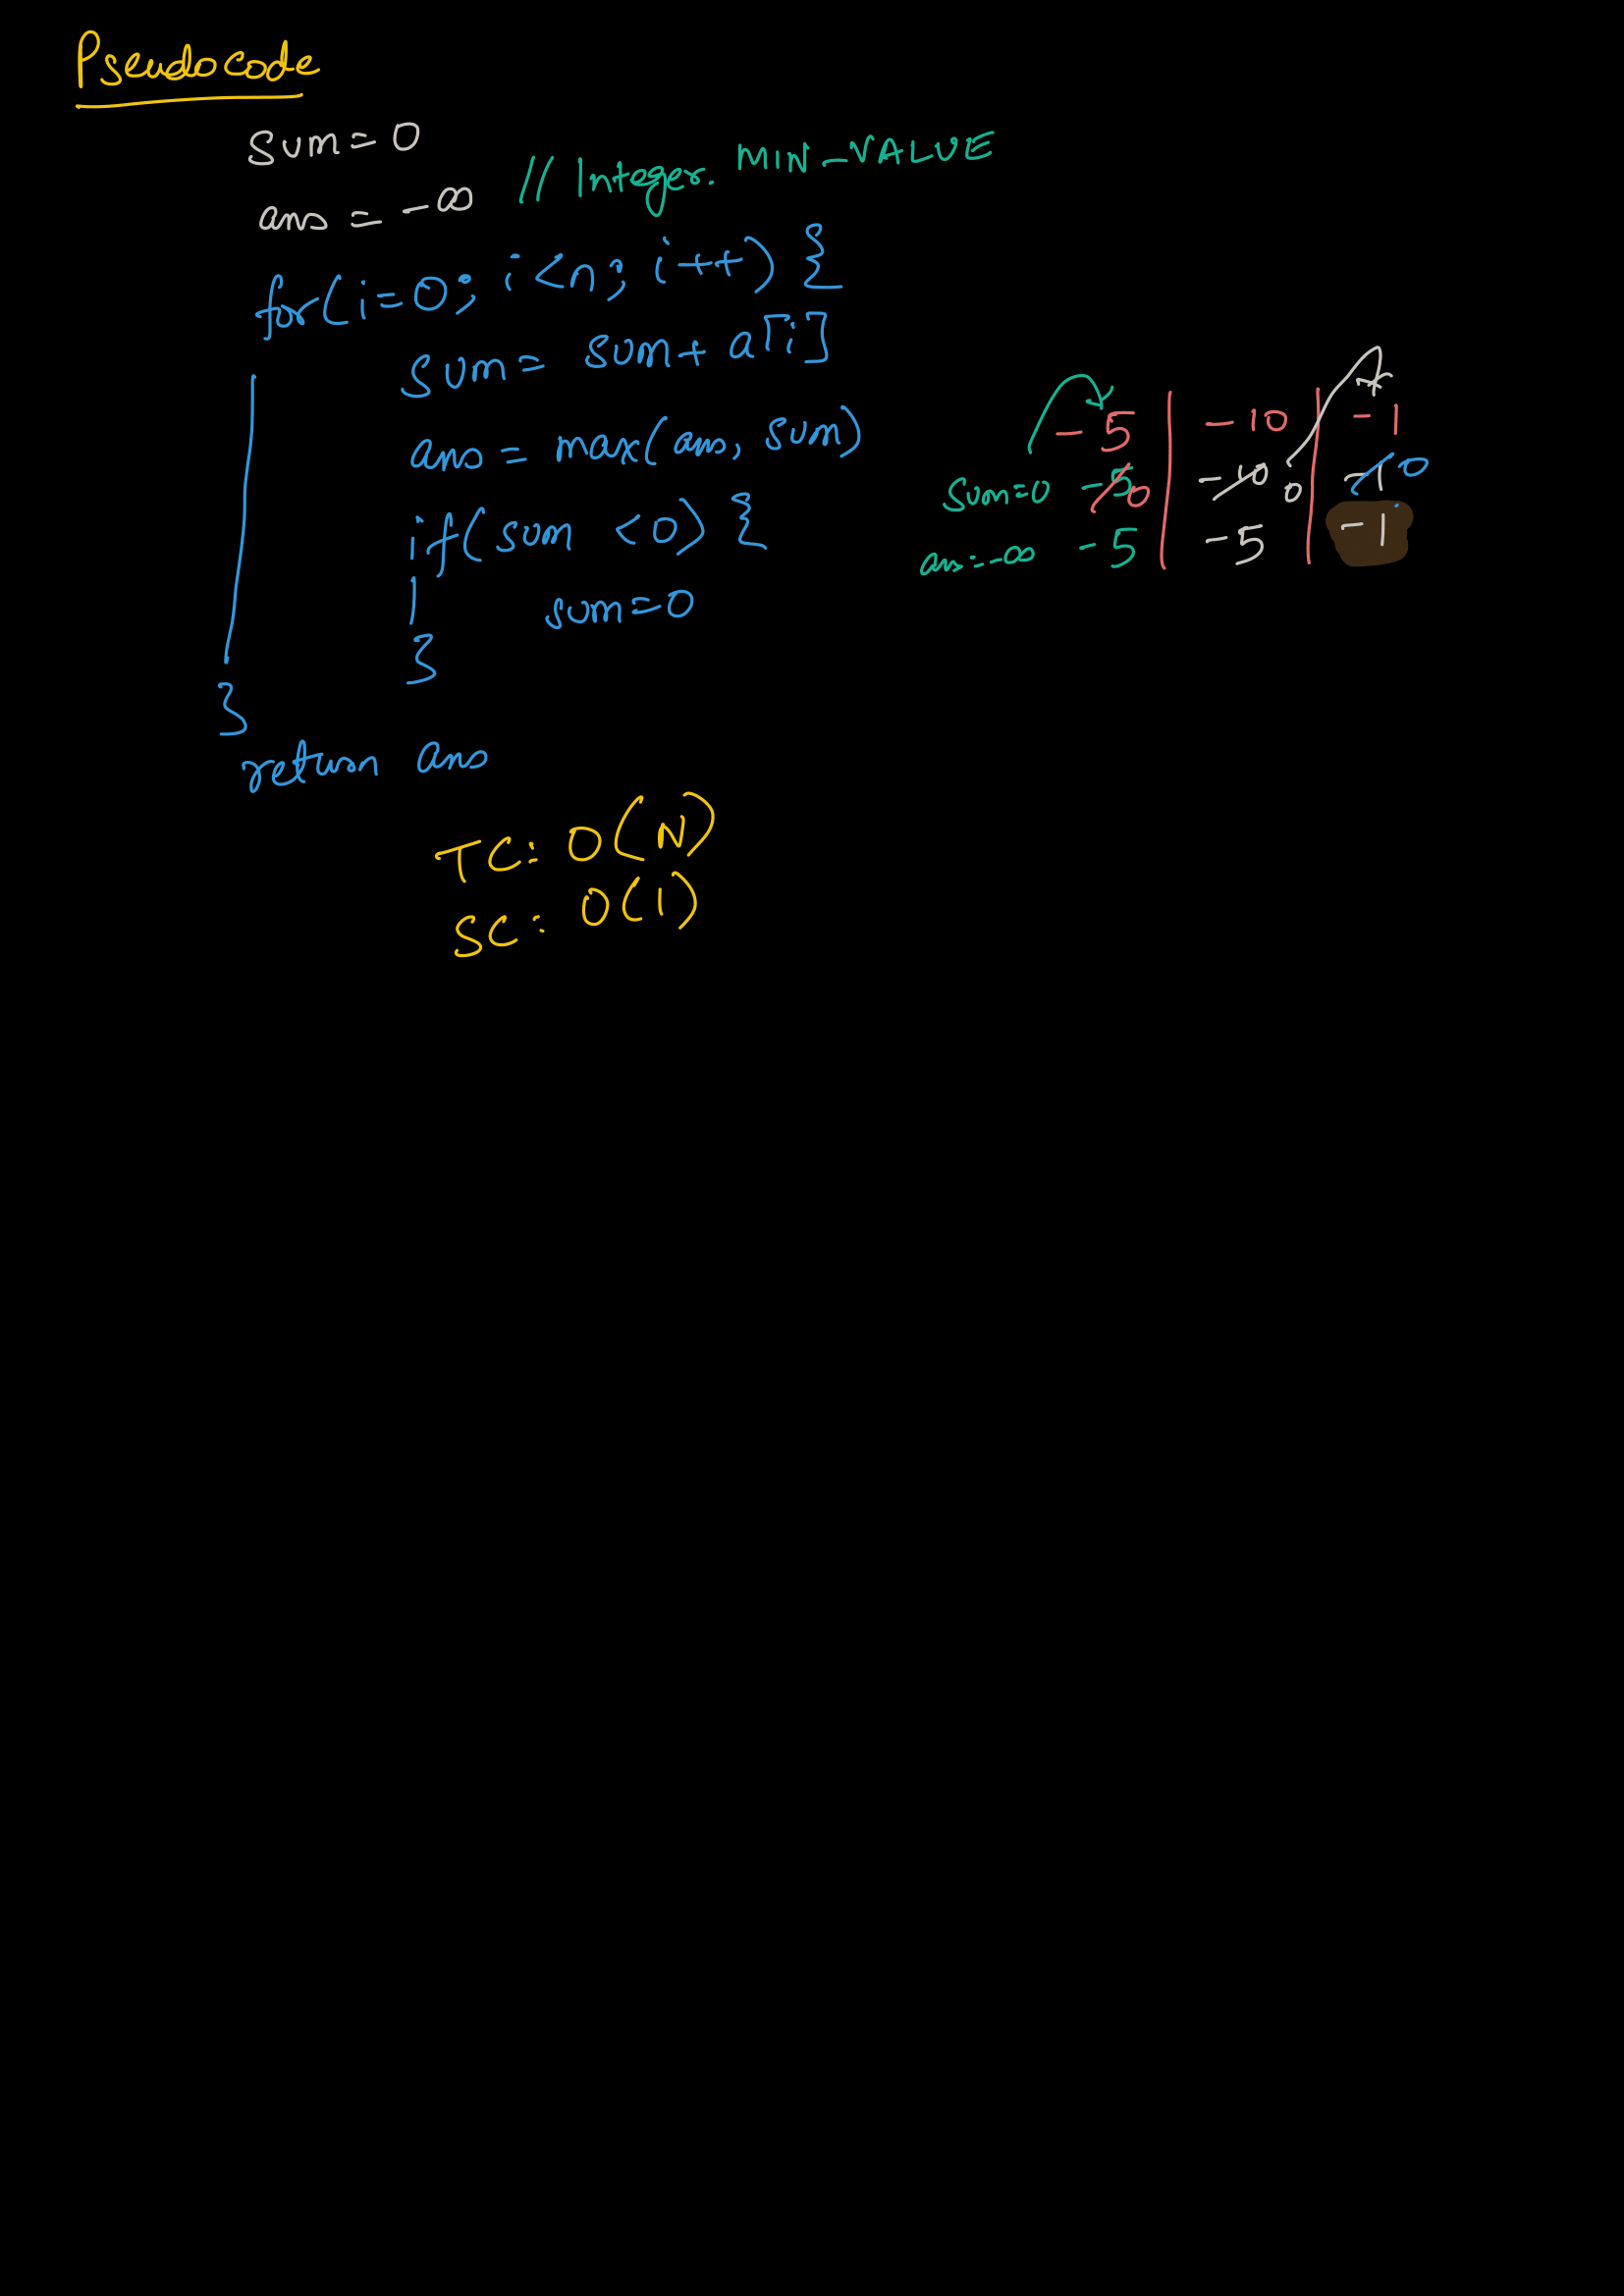 Pseudocode
sum=0
ans = -∞ // Integer. MIN_VALUE
for(i=0; i<n; i++) {
sum= sum+ a[i]
ans = max(ans, sum)
if(sum <0) {
sum=0
}
}
return ans
TC: O(N)
SC: O(1)
-5 | -10 | -1
sum=0 -5 0 | -10 0 | -1 0
ans=-∞ -5 | -5 | -1